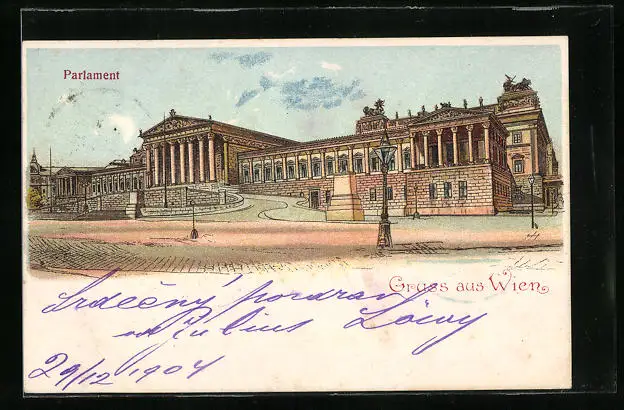 Parlament
Gruss aus Wien
Srdečný pozdrav
od Julius Löwy
29/12 1904